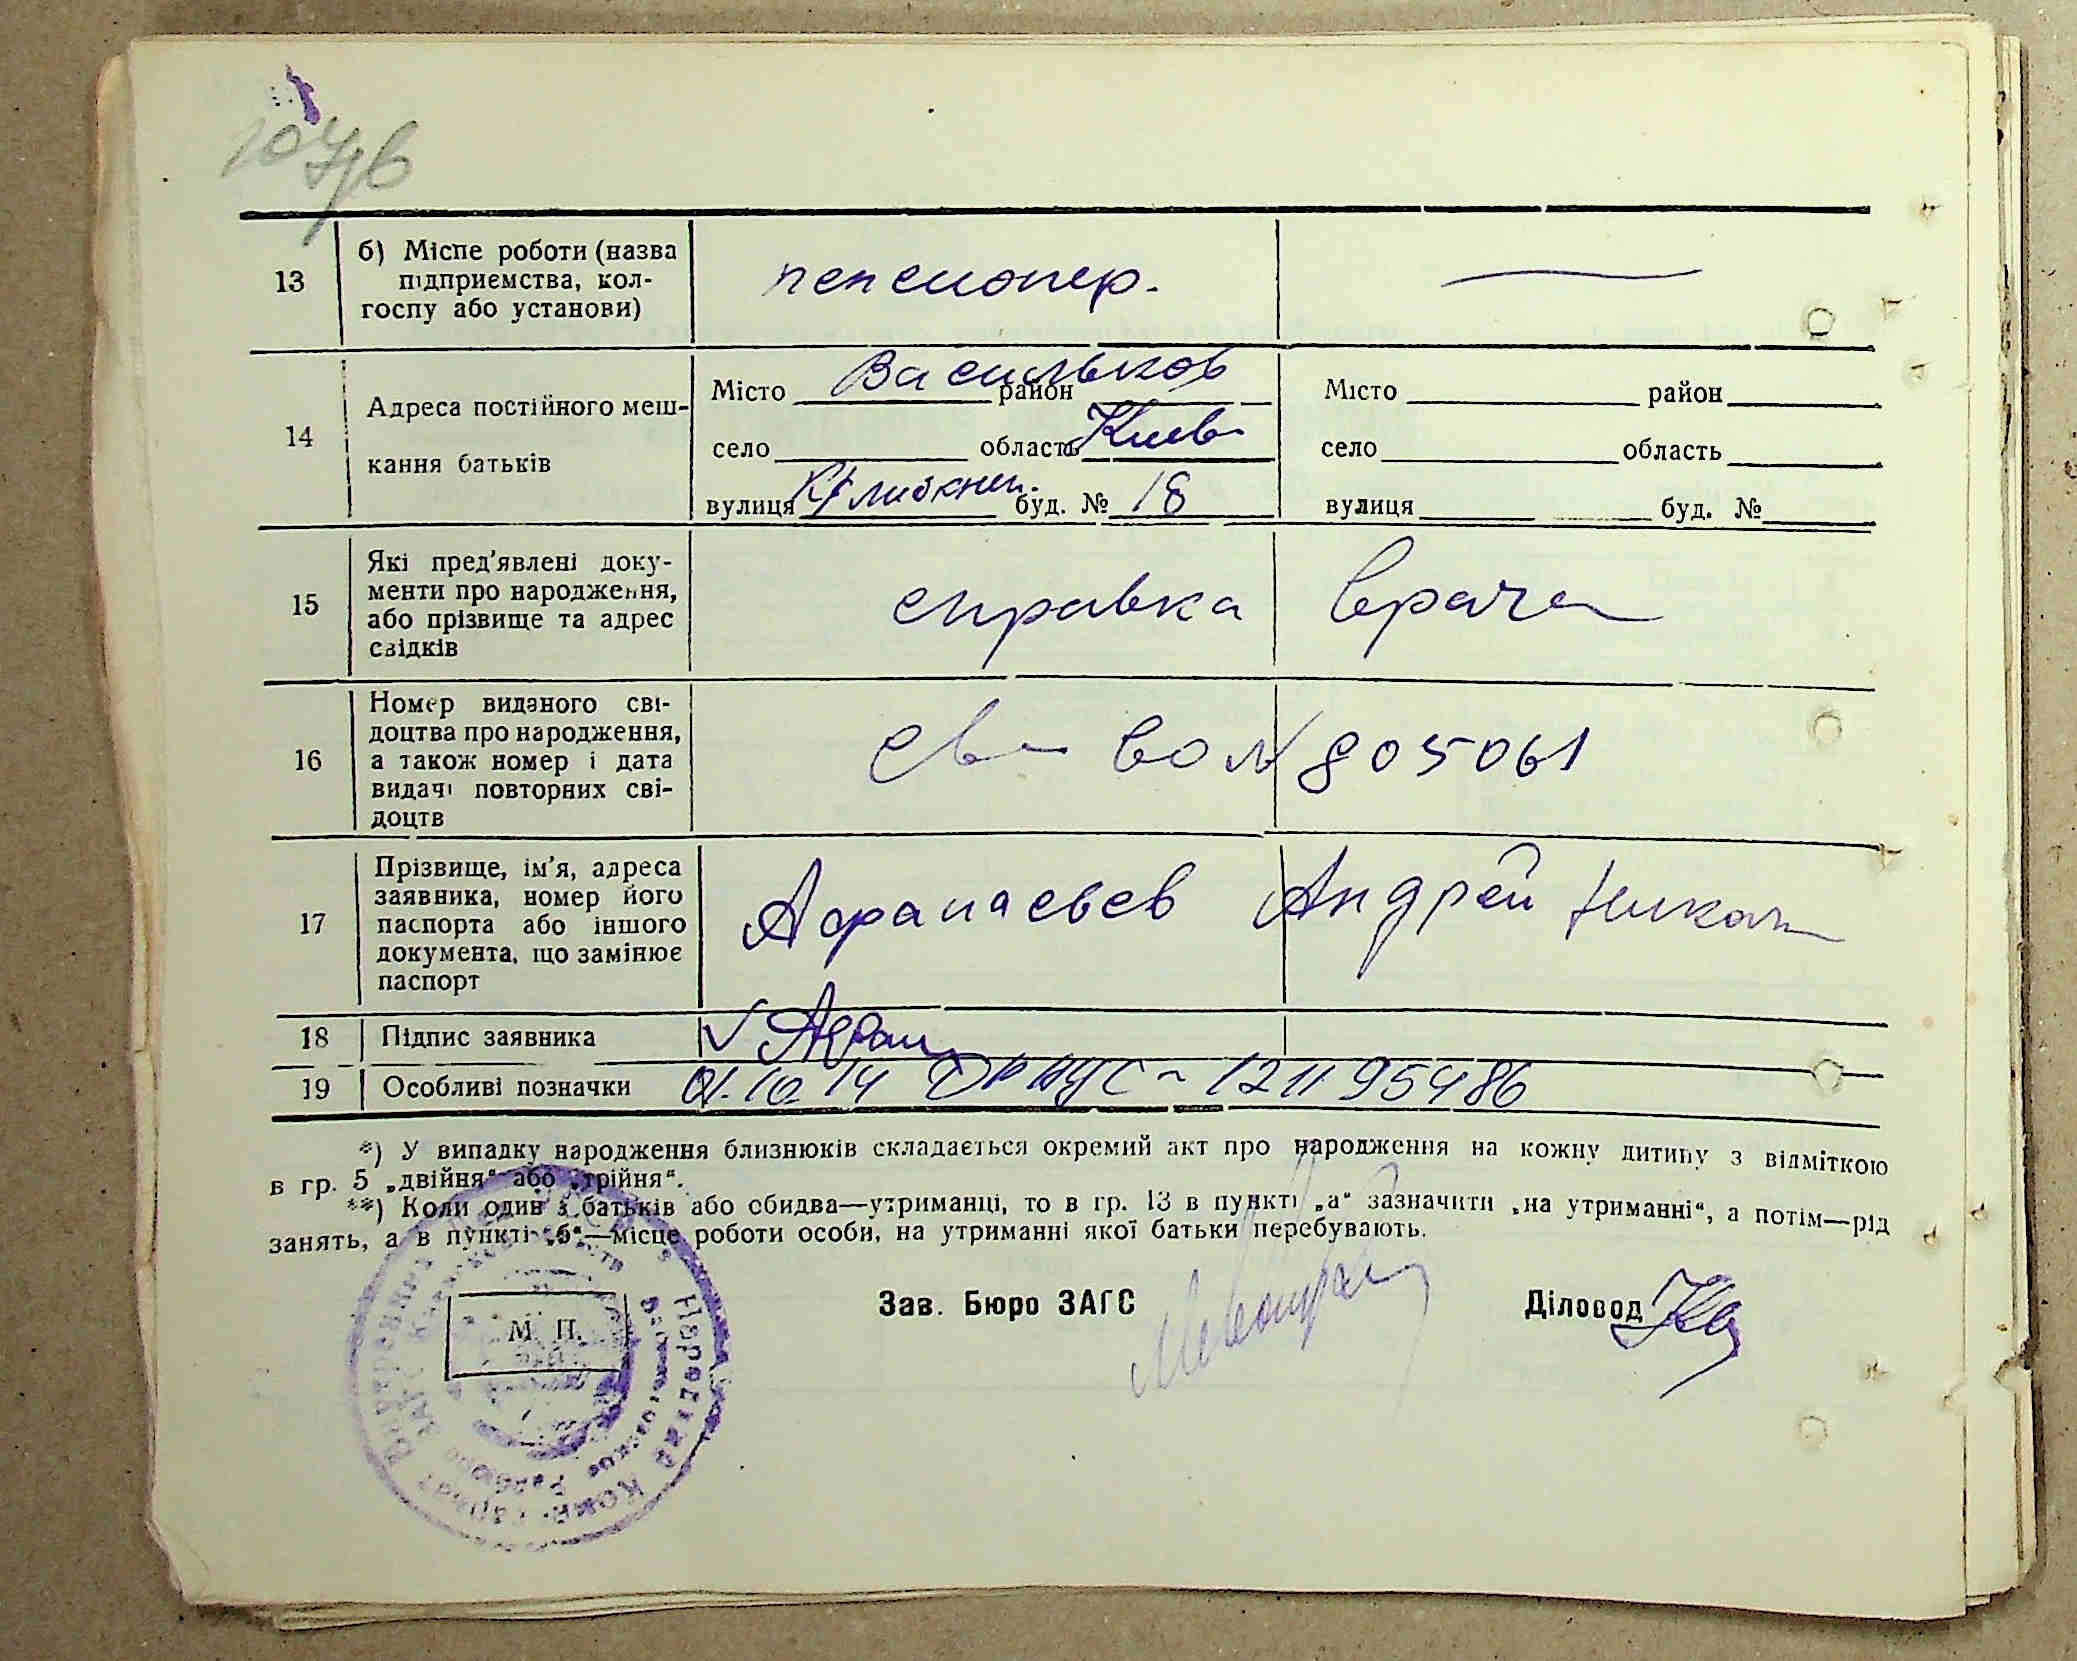 107 зв
13
б) Місце роботи (назва
підприємства, кол-
госпу або установи)
пенсионер.
—
14
Адреса постійного меш-
кання батьків
Місто Васильков район
село область Киев
вулиця К. Либкнех. буд. № 18
Місто район
село область
вулиця буд. №
15
Які пред'явлені доку-
менти про народження,
або прізвище та адрес
свідків
справка врача
16
Номер виданого сві-
доцтва про народження,
а також номер і дата
видачі повторних сві-
доцтв
св- во № 805061
17
Прізвище, ім'я, адреса
заявника, номер його
паспорта або іншого
документа, що замінює
паспорт
Афанасьев Андрей Никол
18
Підпис заявника
√ Афан
19
Особливі позначки
01.10.14 ДРАЦС 1211 95486
*) У випадку народження близнюків складається окремий акт про народження на кожну дитину з відміткою
в гр. 5 „двійня“ або „трійня“.
**) Коли один з батьків або обидва—утриманці, то в гр. 13 в пункті „а“ зазначити „на утриманні“, а потім—рід
занять, а в пункті „б“—місце роботи особи, на утриманні якої батьки перебувають.
М. П.
Зав. Бюро ЗАГС
Діловод